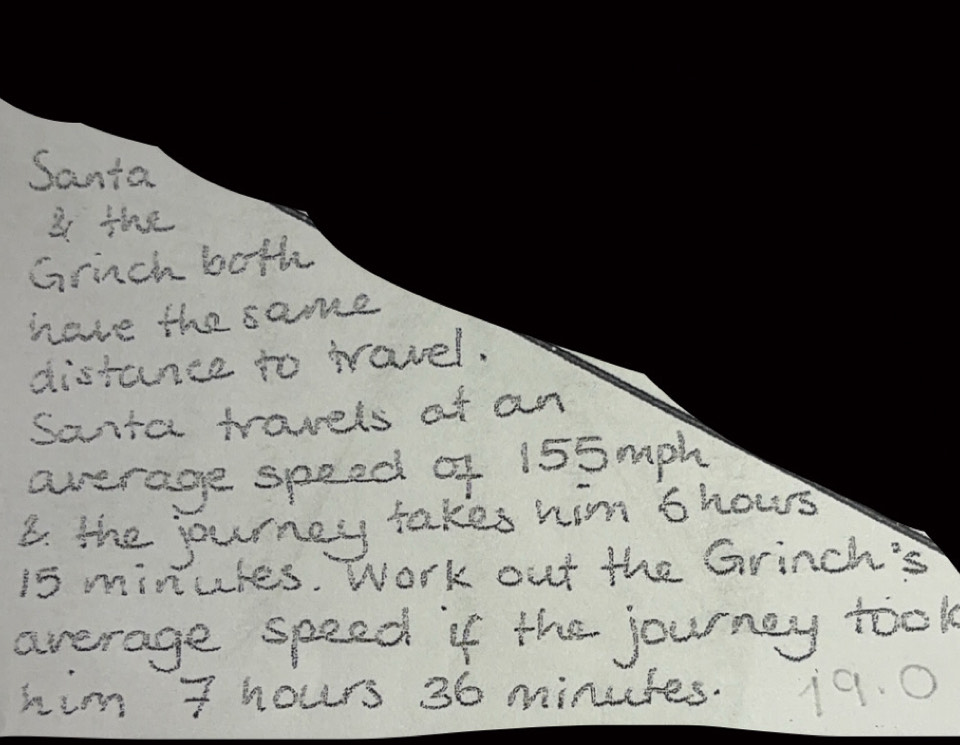 Santa
& the
Grinch both
have the same
distance to travel.
Santa travels at an
average speed of 155mph
& the journey takes him 6 hours
15 minutes. Work out the Grinch's
average speed if the journey took
him 7 hours 36 minutes. 19.0